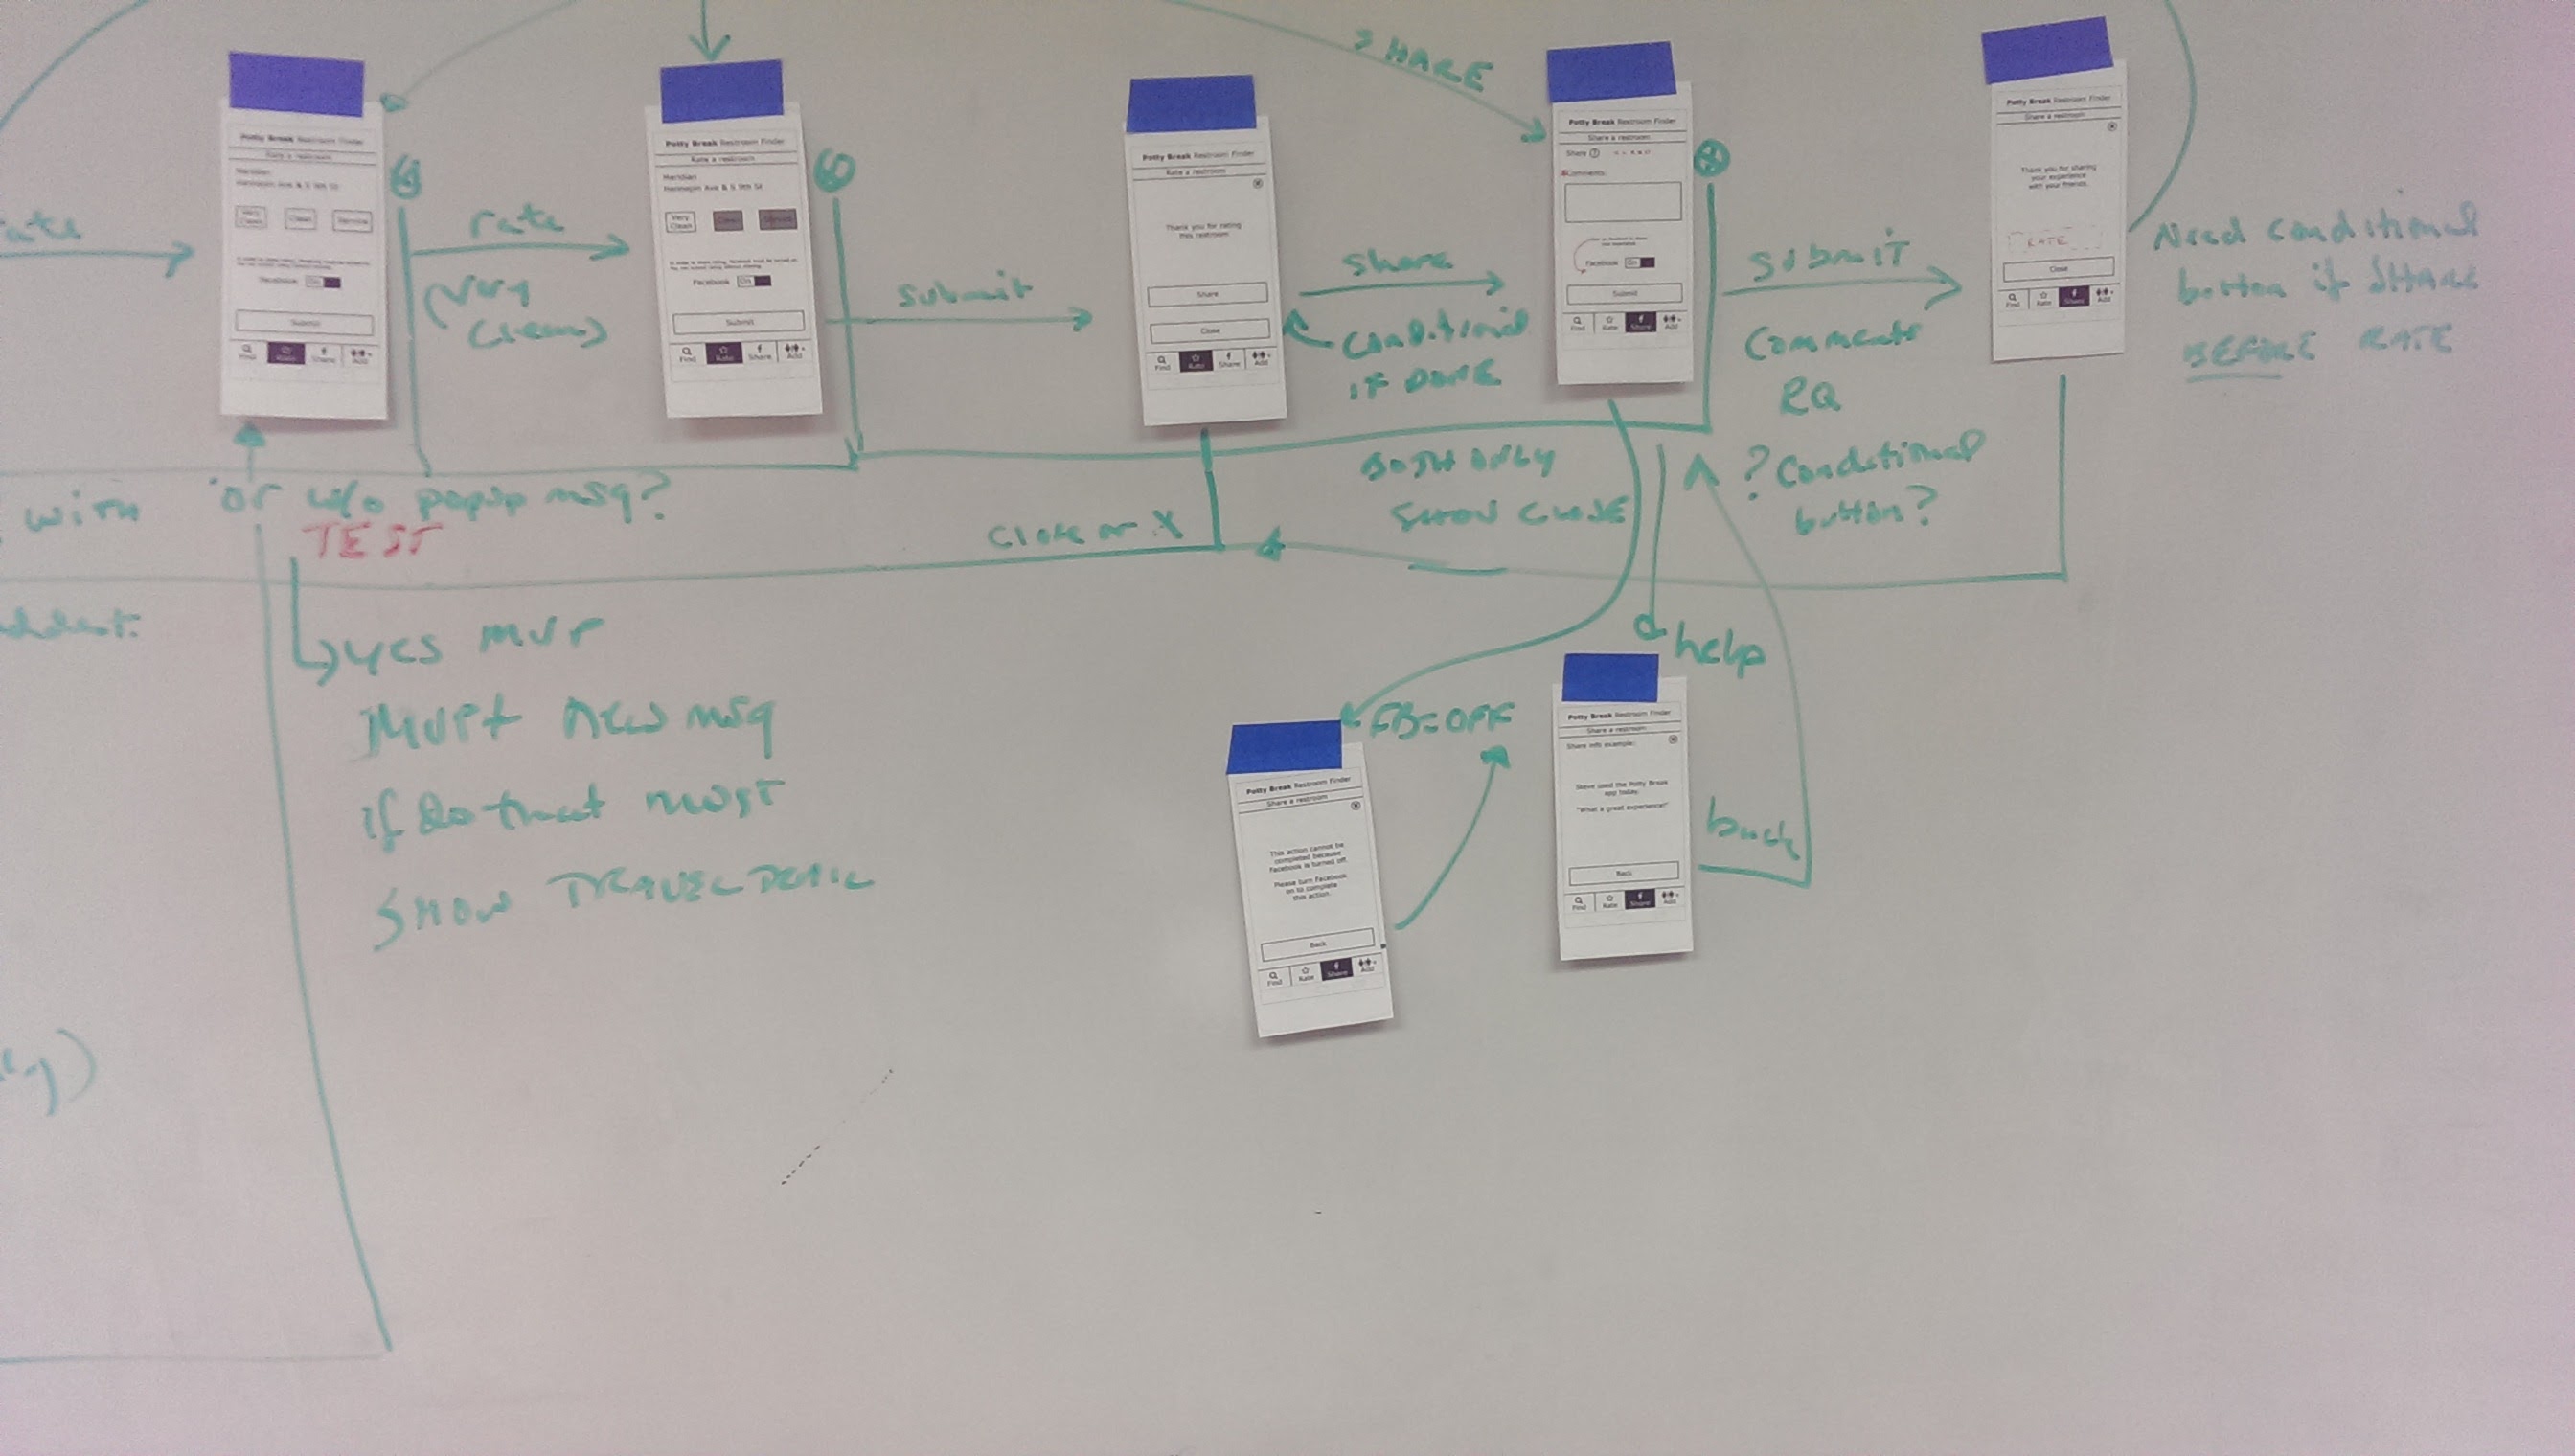 SHARE
Potty Break Restroom Finder
Rate a restroom
Meridian
Hennepin Ave & S 9th St
Very Clean
Clean
Service
Facebook On
Submit
Find Rate Share Add
rate
(very
clean)
Potty Break Restroom Finder
Rate a restroom
Meridian
Hennepin Ave & S 9th St
Very Clean
Clean
Facebook On
Submit
Find Rate Share Add
submit
Potty Break Restroom Finder
Rate a restroom
Thank you for rating
this restroom
Share
Close
Find Rate Share Add
share
conditional
IF DONE
Potty Break Restroom Finder
Share a restroom
Share ?
*Comments:
Facebook On
Submit
Find Rate Share Add
submit
Comments
RQ
? Conditional
button?
Potty Break Restroom Finder
Share a restroom
Thank you for sharing
your experience
with your friends.
RATE
Close
Find Rate Share Add
Need conditional
button if SHARE
BEFORE RATE
with or w/o popup msg?
TEST
YES MVP
MVP+ new msg
if do that must
SHOW TRAVEL DETAIL
Close or X
BOTH ONLY
SHOW CLOSE
help
FB=OFF
Potty Break Restroom Finder
Share a restroom
This action cannot be
completed because
Facebook is turned off.
Please turn Facebook
on to complete
this action.
Back
Find Rate Share Add
Potty Break Restroom Finder
Share a restroom
Share info example:
Steve used the Potty Break
app today.
"What a great experience!"
Back
Find Rate Share Add
back